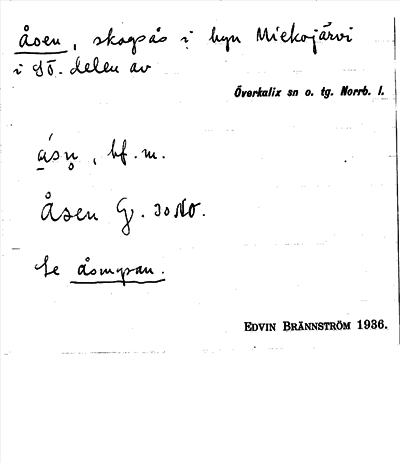 åsen, skogsås i byn Miekojärvi
i SÖ. delen av
Överkalix sn o. tg. Norrb. l.
, bf. m.
Åsen G. 30 NO.
Se åsmyran.
EDVIN BRÄNNSTRÖM 1936.